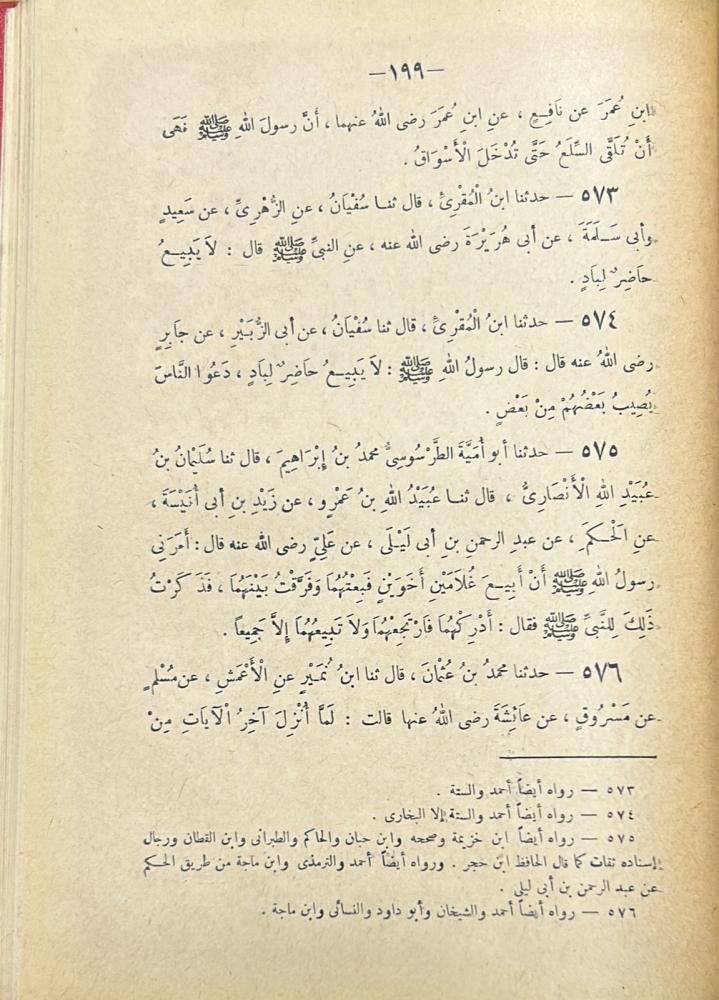 —١٩٩—
ابنِ عُمَرَ عن نَافِـعٍ ، عنِ ابنِ عُمَرَ رضى اللهُ عنهما ، أَنَّ رسولَ اللهِ ﷺ نَهَى
أَنْ تُلَقَّى السِّلَعُ حَتَّى تُدْخَلَ الْأَسْوَاقُ .
٥٧٣ — حدثنا ابنُ الْمُقْرِئِ ، قال ثنـا سُفْيَانُ ، عنِ الزُّهْرِىِّ ، عن سَعِيدٍ
وأبى سَـلَمَةَ ، عن أبى هُرَيْرَةَ رضى الله عنه ، عنِ النبىِّ ﷺ قال : لاَ يَبِيـعُ
حَاضِرٌ لِبادٍ .
٥٧٤ — حدثنا ابنُ الْمُقْرِئِ ، قال ثنا سُفْيَانُ ، عن أبى الزُّبَيْرِ ، عن جابِرٍ
رضى اللهُ عنه قال : قال رسولُ اللهِ ﷺ : لاَ يَبِيـعُ حاضِرٌ لِبادٍ ، دَعُوا النَّاسَ
يُصِيبُ بَعْضُهُمْ مِنْ بَعْضٍ .
٥٧٥ — حدثنا أبو أُمَيَّةَ الطَّرْسُوسِىُّ محمدُ بنُ إِبْرَاهِيمَ ، قال ثنا سُلَيْمَانُ بنُ
عُبَيْدِ اللهِ الْأَنْصَارِىُّ ، قال ثنـا عُبَيْدُ اللهِ بنُ عَمْرٍو ، عن زَيْدِ بنِ أبى أُنَيْسَةَ ،
عنِ الْحَـكَمِ ، عن عبدِ الرحمنِ بنِ أبى لَيْـلَى ، عن عَلِىٍّ رضى الله عنه قال : أَمَرَنِى
رسولُ اللهِ ﷺ أَنْ أَبِيـعَ غُلاَمَيْنِ أَخَوَيْنِ فَبِعْتُهُمَا وَفَرَّقْتُ بَيْنَهُمَا ، فَذَكَرْتُ
ذَلِكَ لِلنَّبِىِّ ﷺ فقال : أَدْرِكْهُمَا فَارْتَجِعْهُمَا وَلاَ تَبِيعُهُمَا إِلاَّ جَمِيعاً .
٥٧٦ — حدثنا محمدُ بنُ عُثْمَانَ ، قال ثنا ابنُ نُمَيْرٍ عنِ الْأَعْمَشِ ، عن مُسْلِمٍ
عن مَسْرُوقٍ ، عن عَائِشَةَ رضى اللهُ عنها قالت : لَمَّا أُنْزِلَ آخِرُ الْآيَاتِ مِنْ
٥٧٣ — رواه أيضاً أحمد والستة .
٥٧٤ — رواه أيضاً أحمد والستة إلا البخارى .
٥٧٥ — رواه أيضاً ابن خزيمة وصححه وابن حبان والحاكم والطبرانى وابن القطان ورجال
إسناده ثقات كما قال الحافظ ابن حجر . ورواه أيضاً أحمد والترمذى وابن ماجة من طريق الحكم
عن عبد الرحمن بن أبى ليلى .
٥٧٦ — رواه أيضاً أحمد والشيخان وأبو داود والنسائى وابن ماجة .